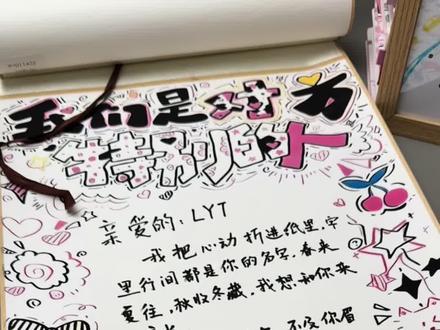 我们是对方
特别的人
亲爱的: LYT
我把心动折进纸里,字
里行间都是你的名字,春来
夏往,秋收冬藏,我想和你来
你眉